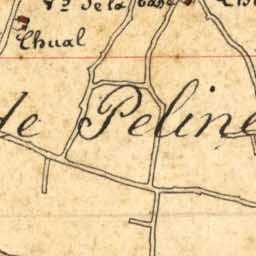 Vª de la
Chual
de Peline